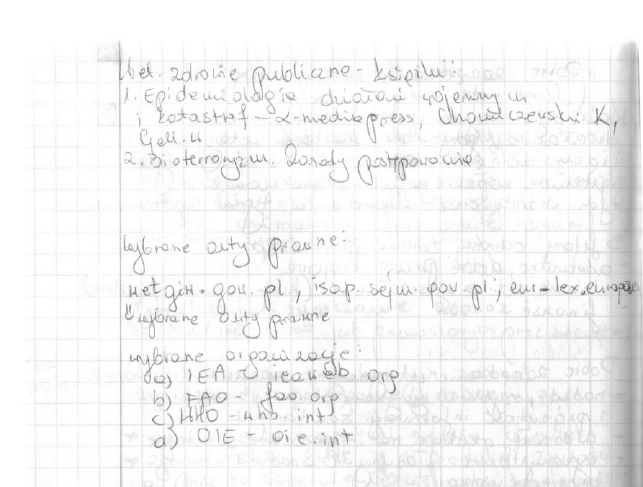 Wet. zdrowie publiczne - książki:
1. Epidemiologia działań wojennych
i katastrof - α-medica press, Chomiczewski K,
Gall. W
2. Bioterroryzm. Zasady postępowania
wybrane akty prawne:
wetgiw.gov.pl, isap.sejm.gov.pl, eur-lex.europa
wybrane akty prawne
wybrane organizacje:
a) IEA - ieaweb.org
b) FAO - fao.org
c) WHO - who.int
d) OIE - oie.int